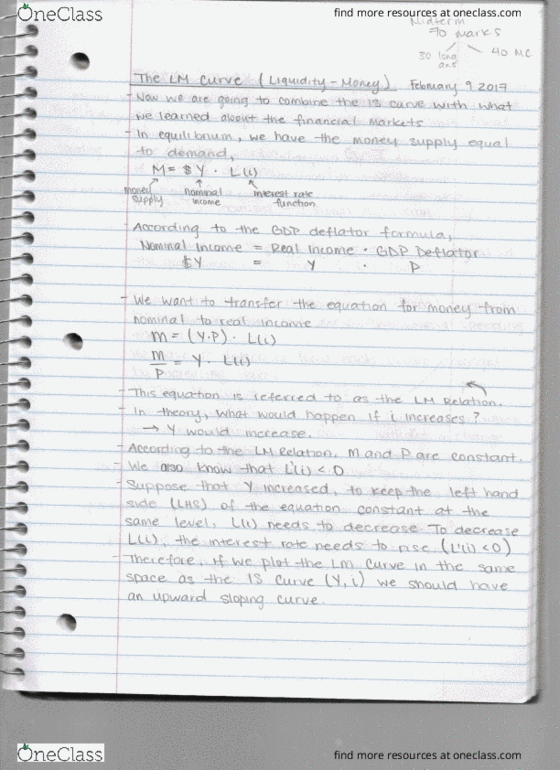 OneClass
find more resources at oneclass.com
Midterm
70 marks
30 long ans
40 MC
The LM Curve (Liquidity-Money) February 9 2017
- Now we are going to combine the IS curve with what
we learned about the financial markets
- In equilibrium, we have the money supply equal
to demand,
M = $Y · L(i)
money supply
nominal income
interest rate function
- According to the GDP deflator formula,
Nominal Income = Real Income · GDP Deflator
$Y = Y · P
- We want to transfer the equation for money from
nominal to real income
m = (Y·P) · L(i)
m/P = Y · L(i)
- This equation is referred to as the LM Relation.
- In theory, what would happen if i increases?
→ Y would increase.
- According to the LM Relation, M and P are constant.
- We also know that L'(i) < 0
- Suppose that Y increased, to keep the left hand
side (LHS) of the equation constant at the
same level, L(i) needs to decrease. To decrease
L(i), the interest rate needs to rise (L'(i) < 0)
- Therefore, if we plot the LM curve in the same
space as the IS curve (Y, i) we should have
an upward sloping curve.
OneClass
find more resources at oneclass.com